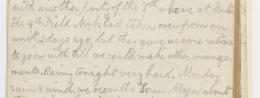 with another party of the 7th above at
The 4th Field Amb. had taken over from our
unit 2 days ago, but they gave us some rations
to go on with till we could make other arrange-
ments. Rainy tonight very hard. Monday
rain & mud, we seen the Town Major about